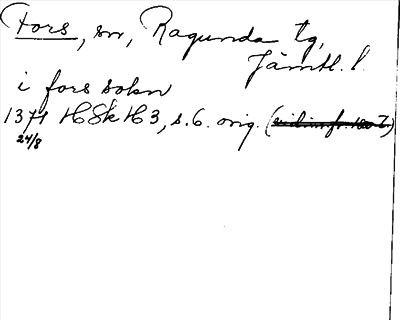 Fors, sn, Ragunda tg,
Jämtl. l.
i fors sokn
1371 HSH H3, s. 6. orig.
24/8